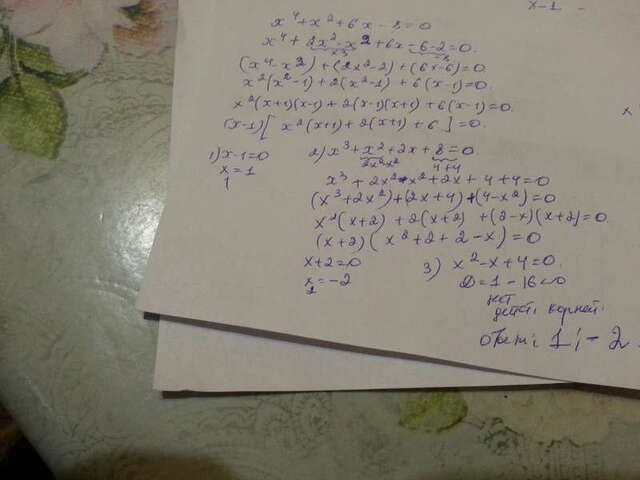 x-1
x⁴+x²+6x-8=0
x⁴+2x²-x²+6x-6-2=0.
(x⁴-x²)+(2x²-2)+(6x-6)=0
x²(x²-1)+2(x²-1)+6(x-1)=0.
x²(x+1)(x-1)+2(x-1)(x+1)+6(x-1)=0.
(x-1)[x²(x+1)+2(x+1)+6]=0.
1) x-1=0 2) x³+x²+2x+8=0
x=1 2x²-x² 4+4
1 x³+2x²-x²+2x+4+4=0
(x³+2x²)+(2x+4)+(4-x²)=0
x²(x+2)+2(x+2)+(2-x)(x+2)=0.
(x+2)(x²+2+2-x)=0
x+2=0 3) x²-x+4=0.
x=-2 D=1-16<0
2 нет
действ корней.
ответ: 1; -2.
x